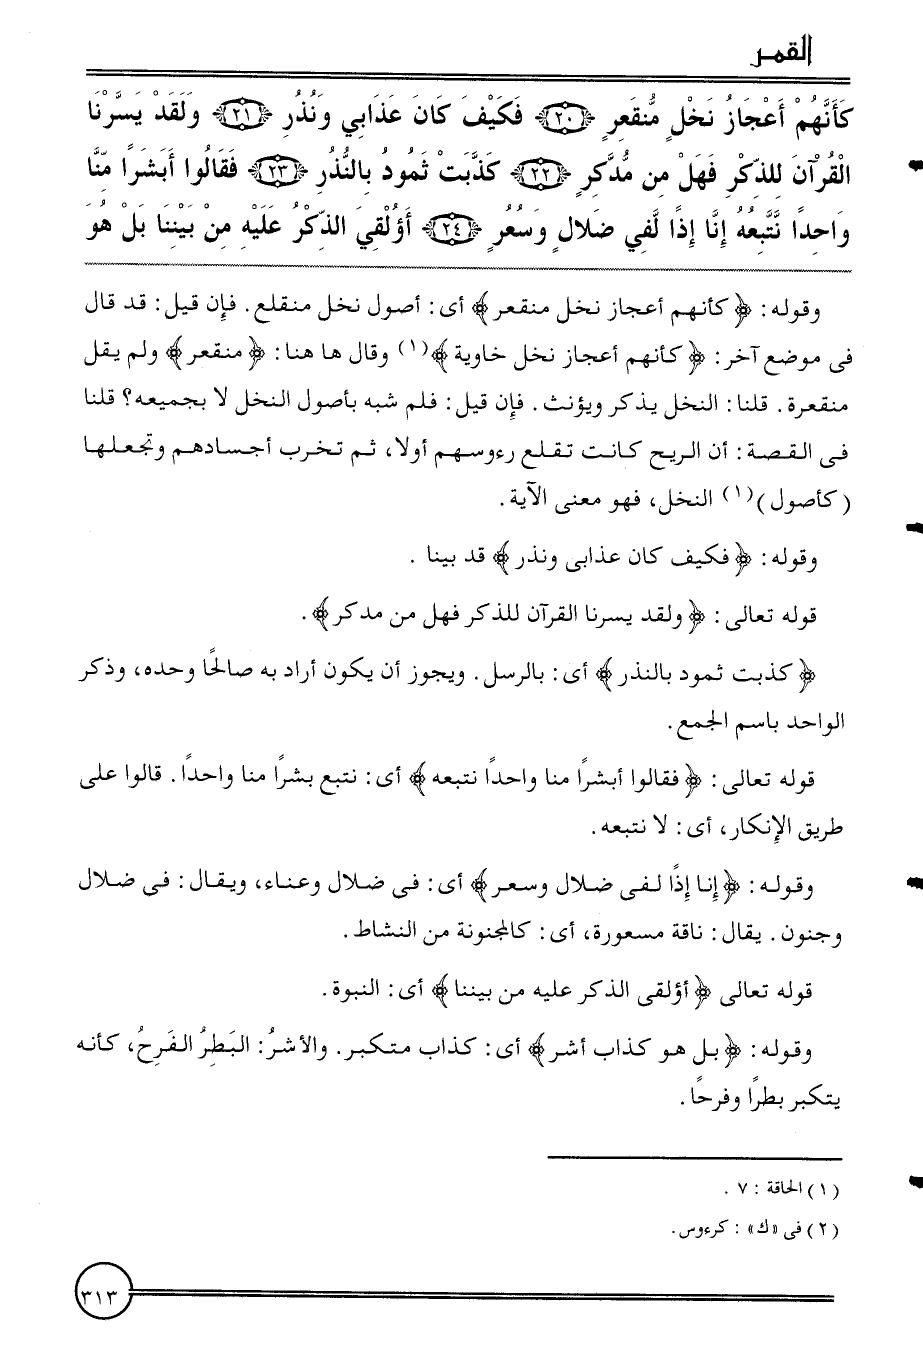 القمر
كَأَنَّهُمْ أَعْجَازُ نَخْلٍ مُّنقَعِرٍ ﴿٢٠﴾ فَكَيْفَ كَانَ عَذَابِي وَنُذُرِ ﴿٢١﴾ وَلَقَدْ يَسَّرْنَا
الْقُرْآنَ لِلذِّكْرِ فَهَلْ مِن مُّدَّكِرٍ ﴿٢٢﴾ كَذَّبَتْ ثَمُودُ بِالنُّذُرِ ﴿٢٣﴾ فَقَالُوا أَبَشَرًا مِّنَّا
وَاحِدًا نَّتَّبِعُهُ إِنَّا إِذًا لَّفِي ضَلَالٍ وَسُعُرٍ ﴿٢٤﴾ أَؤُلْقِيَ الذِّكْرُ عَلَيْهِ مِنْ بَيْنِنَا بَلْ هُوَ
وقوله: ﴿كأنهم أعجاز نخل منقعر﴾ أى: أصول نخل منقلع. فإن قيل: قد قال
فى موضع آخر: ﴿كأنهم أعجاز نخل خاوية﴾(١) وقال ها هنا: ﴿منقعر﴾ ولم يقل
منقعرة. قلنا: النخل يذكر ويؤنث. فإن قيل: فلم شبه بأصول النخل لا بجميعه؟ قلنا
فى القصة: أن الريح كانت تقلع رءوسهم أولا، ثم تخرب أجسادهم وتجعلها
(كأصول)(١) النخل، فهو معنى الآية.
وقوله: ﴿فكيف كان عذابى ونذر﴾ قد بينا .
قوله تعالى: ﴿ولقد يسرنا القرآن للذكر فهل من مدكر﴾.
﴿كذبت ثمود بالنذر﴾ أى: بالرسل. ويجوز أن يكون أراد به صالحًا وحده، وذكر
الواحد باسم الجمع.
قوله تعالى: ﴿فقالوا أبشرًا منا واحدًا نتبعه﴾ أى: نتبع بشرًا منا واحدًا. قالوا على
طريق الإنكار، أى: لا نتبعه.
وقوله: ﴿إنا إذًا لفى ضلال وسعر﴾ أى: فى ضلال وعناء، ويقال: فى ضلال
وجنون. يقال: ناقة مسعورة، أى: كالمجنونة من النشاط.
قوله تعالى ﴿أؤلقى الذكر عليه من بيننا﴾ أى: النبوة.
وقوله: ﴿بل هو كذاب أشر﴾ أى: كذاب متكبر. والأشرُ: البَطِرُ الفَرِحُ، كأنه
يتكبر بطرًا وفرحًا.
(١) الحاقة : ٧ .
(٢) فى «ك» : كرءوس.
٣١٣